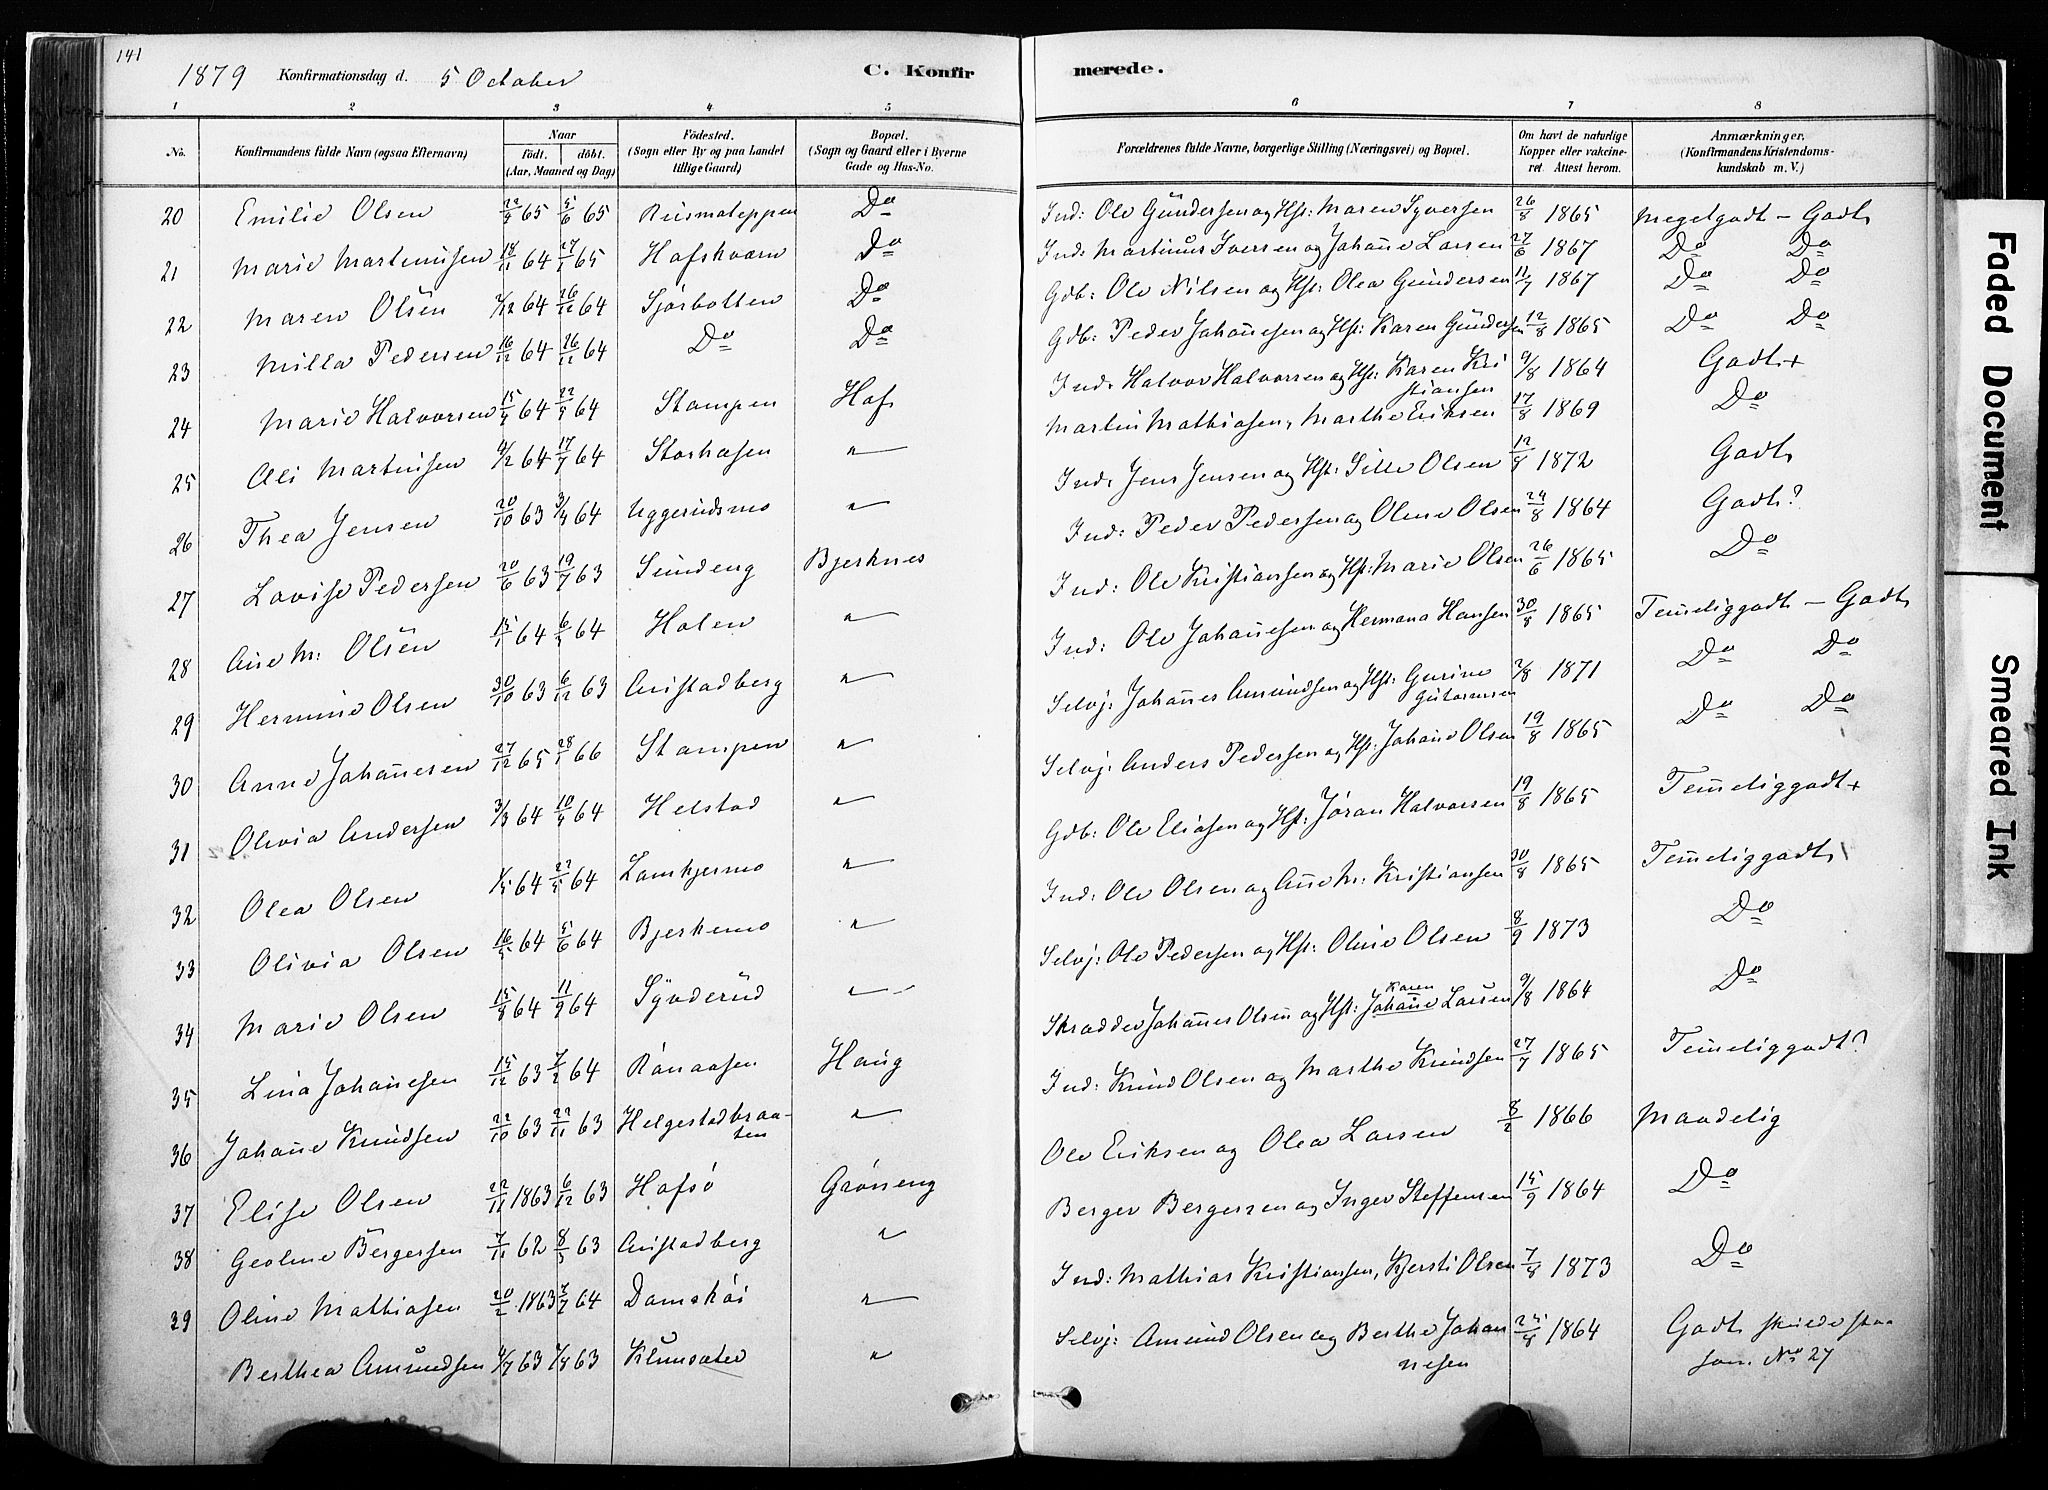 141
1879 Konfirmationsdag d. 5 October C. Konfir merede.
1 2 3 4 5 6 7 8
No. Konfirmandens fulde Navn (ogsaa Efternavn) Naar födt. döbt. (Aar, Maaned og Dag) Födested. (Sogn eller By og paa Landet tillige Gaard) Bopæl. (Sogn og Gaard eller i Byerne Gade og Hus-No. Forældrenes fulde Navne, borgerlige Stilling (Næringsvei) og Bopæl. Om havt de naturlige Kopper eller vakcineret. Attest herom. Anmærkninger. (Konfirmandens Kristendomskundskab m. V.)
20 Emilie Olsen 65 5/6 65 Do Ind: Ole Gundersen og Hst: Maren Syversen 26/8 1865 Megetgodt – Godt
21 Marie Martinusen 18/11 64 65 Hofskværn Do Ind: Martinus Iversen og Johañe Larsen 27/6 1867 Do Do
22 Maren Olsen 64 26/12 64 Sjørbotten Do Gdb: Ole Nilsen og Hst: Olea Gundersen 11/7 1867 Do Do
23 Milla Pedersen 16/12 64 26/12 64 Do Do Gdb: Peder Johañesen og Hst: Karen Gunders 12/8 1865 Do Do
24 Marie Halvorsen 64 64 Stampen Hof Ind: Halvor Halvorsen og Hst: Karen Kri
stiansen 9/8 1864 Godt +
25 Ali Martinsen 64 17/7 64 Storhasen " Martin Mathiasen, Marthe Eriksen 17/8 1869 Do
26 Thea Jensen 20/10 63 3/4 64 Uggerudsmo " Ind: Jens Jensen og Hst: Sille Olsen 1872 Godt
27 Lovise Pedersen 20/6 63 19/7 63 Sundeng Bjerknes Ind: Peder Pedersen og Oline Olsen 1864 Godt?
28 Ane M: Olsen 15/1 64 64 Holen " Ind: Ole Kristiansen og Hst: Marie Olsen 26/6 1865 Do
29 Hermine Olsen 30/10 63 6/12 63 Aristadberg " Ind: Ole Johañesen og Hermana Hansen 30/8 1865 Temeliggodt – Godt
30 Anne Johañesen 27/12 65 28/1 66 Stampen " Selvj: Johañes Amundsen og Hst: Gurine
Gutormsen 2/8 1871 Do Do
31 Olivia Andersen 3/3 64 10/4 64 Helstad " Selvj: Anders Pedersen og Hst: Johañe Olsen 19/8 1865 Do Do
32 Olea Olsen 1/5 64 22/5 64 Lamkjermo " Gdb: Ole Eliasen og Hst: Jóran Halvorsen 19/8 1865 Temeliggodt +
33 Olivia Olsen 16/5 64 5/6 64 Bjerkemo " Ind: Ole Olsen og Añe M: Kristiansen 30/8 1865 Temeliggodt
34 Marie Olsen 15/8 64 11/9 64 Synderud " Selvj: Ole Pedersen og Hst: Oline Olsen 8/9 1873 Do
35 Lina Johañesen 15/12 63 7/2 64 Rønaasen Haug Skradder Johañes Olsen og Hst: Karen Johañe Larsen 9/8 1864 Do
36 Johañe Knudsen 22/10 63 22/11 63 Helgestadbraa-
ten " Ind: Knud Olsen og Marthe Knudsen 27/7 1865 Temeliggodt?
37 Elise Olsen 22/11 1863 6/12 63 Hofsó Grøneng Ole Eriksen og Olea Larsen 8/2 1866 Maadelig
38 Geoline Bergersen 7/11 62 8/3 63 Aristadberg " Berger Bergersen og Inger Steffensen 15/9 1864 Do
39 Oline Mathiasen 20/2 1863 64 Damskói " Ind: Mathias Kristiansen, Kjersti Olsen 7/8 1873 Do
Berthea Amundsen 63 63 Klunsæter " Selvj: Amund Olsen og Berthe Johan
nesen 1864 Godt skulde staa
som No 27
Faded Document
Smeared Ink